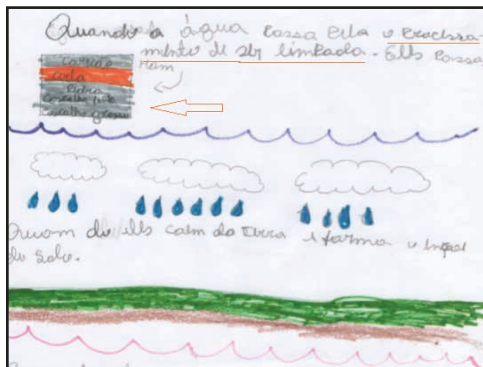 Quando a água passa pela o processa
mento di ser limpada. Ells passa
Carvão
areia
Pedra
cascalho fino
cascalho grosso
Quam do ells caim da terra i forma o
do solo.